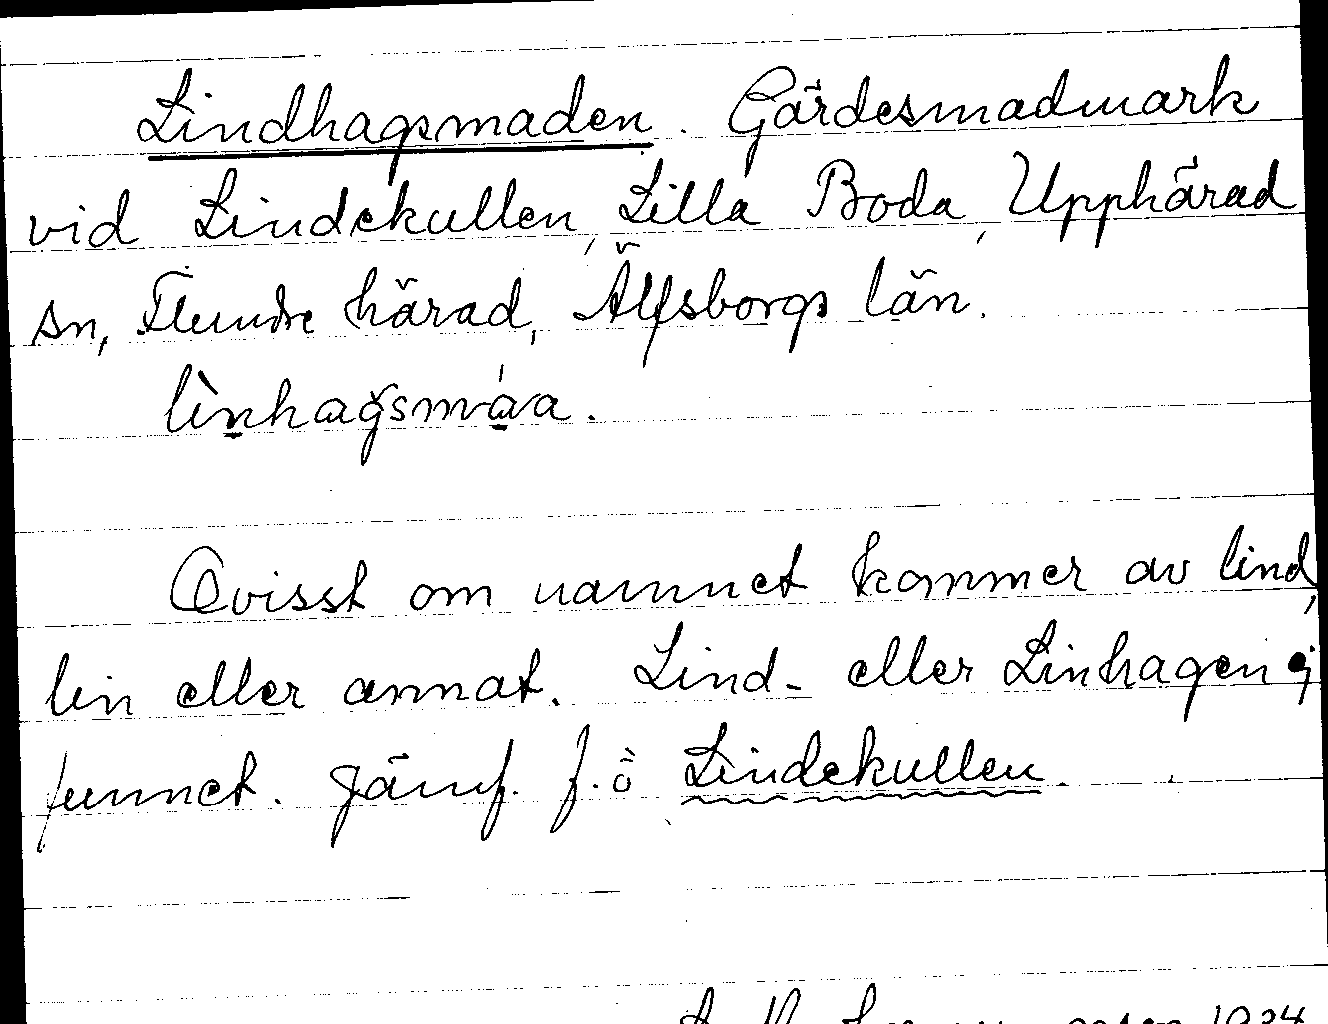 Lindhagsmaden. Gärdesmadmark
vid Lindekullen, Lilla Boda, Upphärad
sn, Flundre härad, Älfsborgs län.
lìnhagsmáa.
Ovisst om namnet kommer av lind,
lin eller annat. Lind- eller Linhagen ej
funnet. Jämf. f.ö Lindekullen.
1934